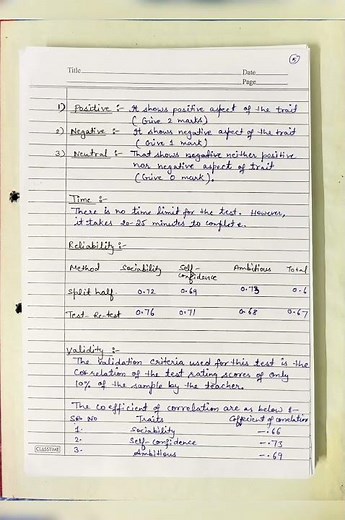 5
Title
Date
Page
1) Positive :- It shows positive aspect of the trait
( Give 2 marks)
2) Negative :- It shows negative aspect of the trait
( Give 1 mark)
3) Neutral :- That shows negative neither positive
nor negative aspect of trait
(Give 0 mark).
Time :-
There is no time limit for the test. However,
it takes 20-25 minutes to complete.
Reliability :-
Method Sociability Self-confidence Ambitious Total
Split half 0.72 0.69 0.73 0.6
Test-Re-test 0.76 0.71 0.68 0.67
Validity :-
The validation criteria used for this test is the
correlation of the test rating scores of only
10% of the sample by the teacher.
*The coefficient of correlation are as below :-
Sr. No Traits Coefficient of correlation
1. Sociability -.66
2. Self-confidence -.73
3- Ambitious -.69
CLASSTIME